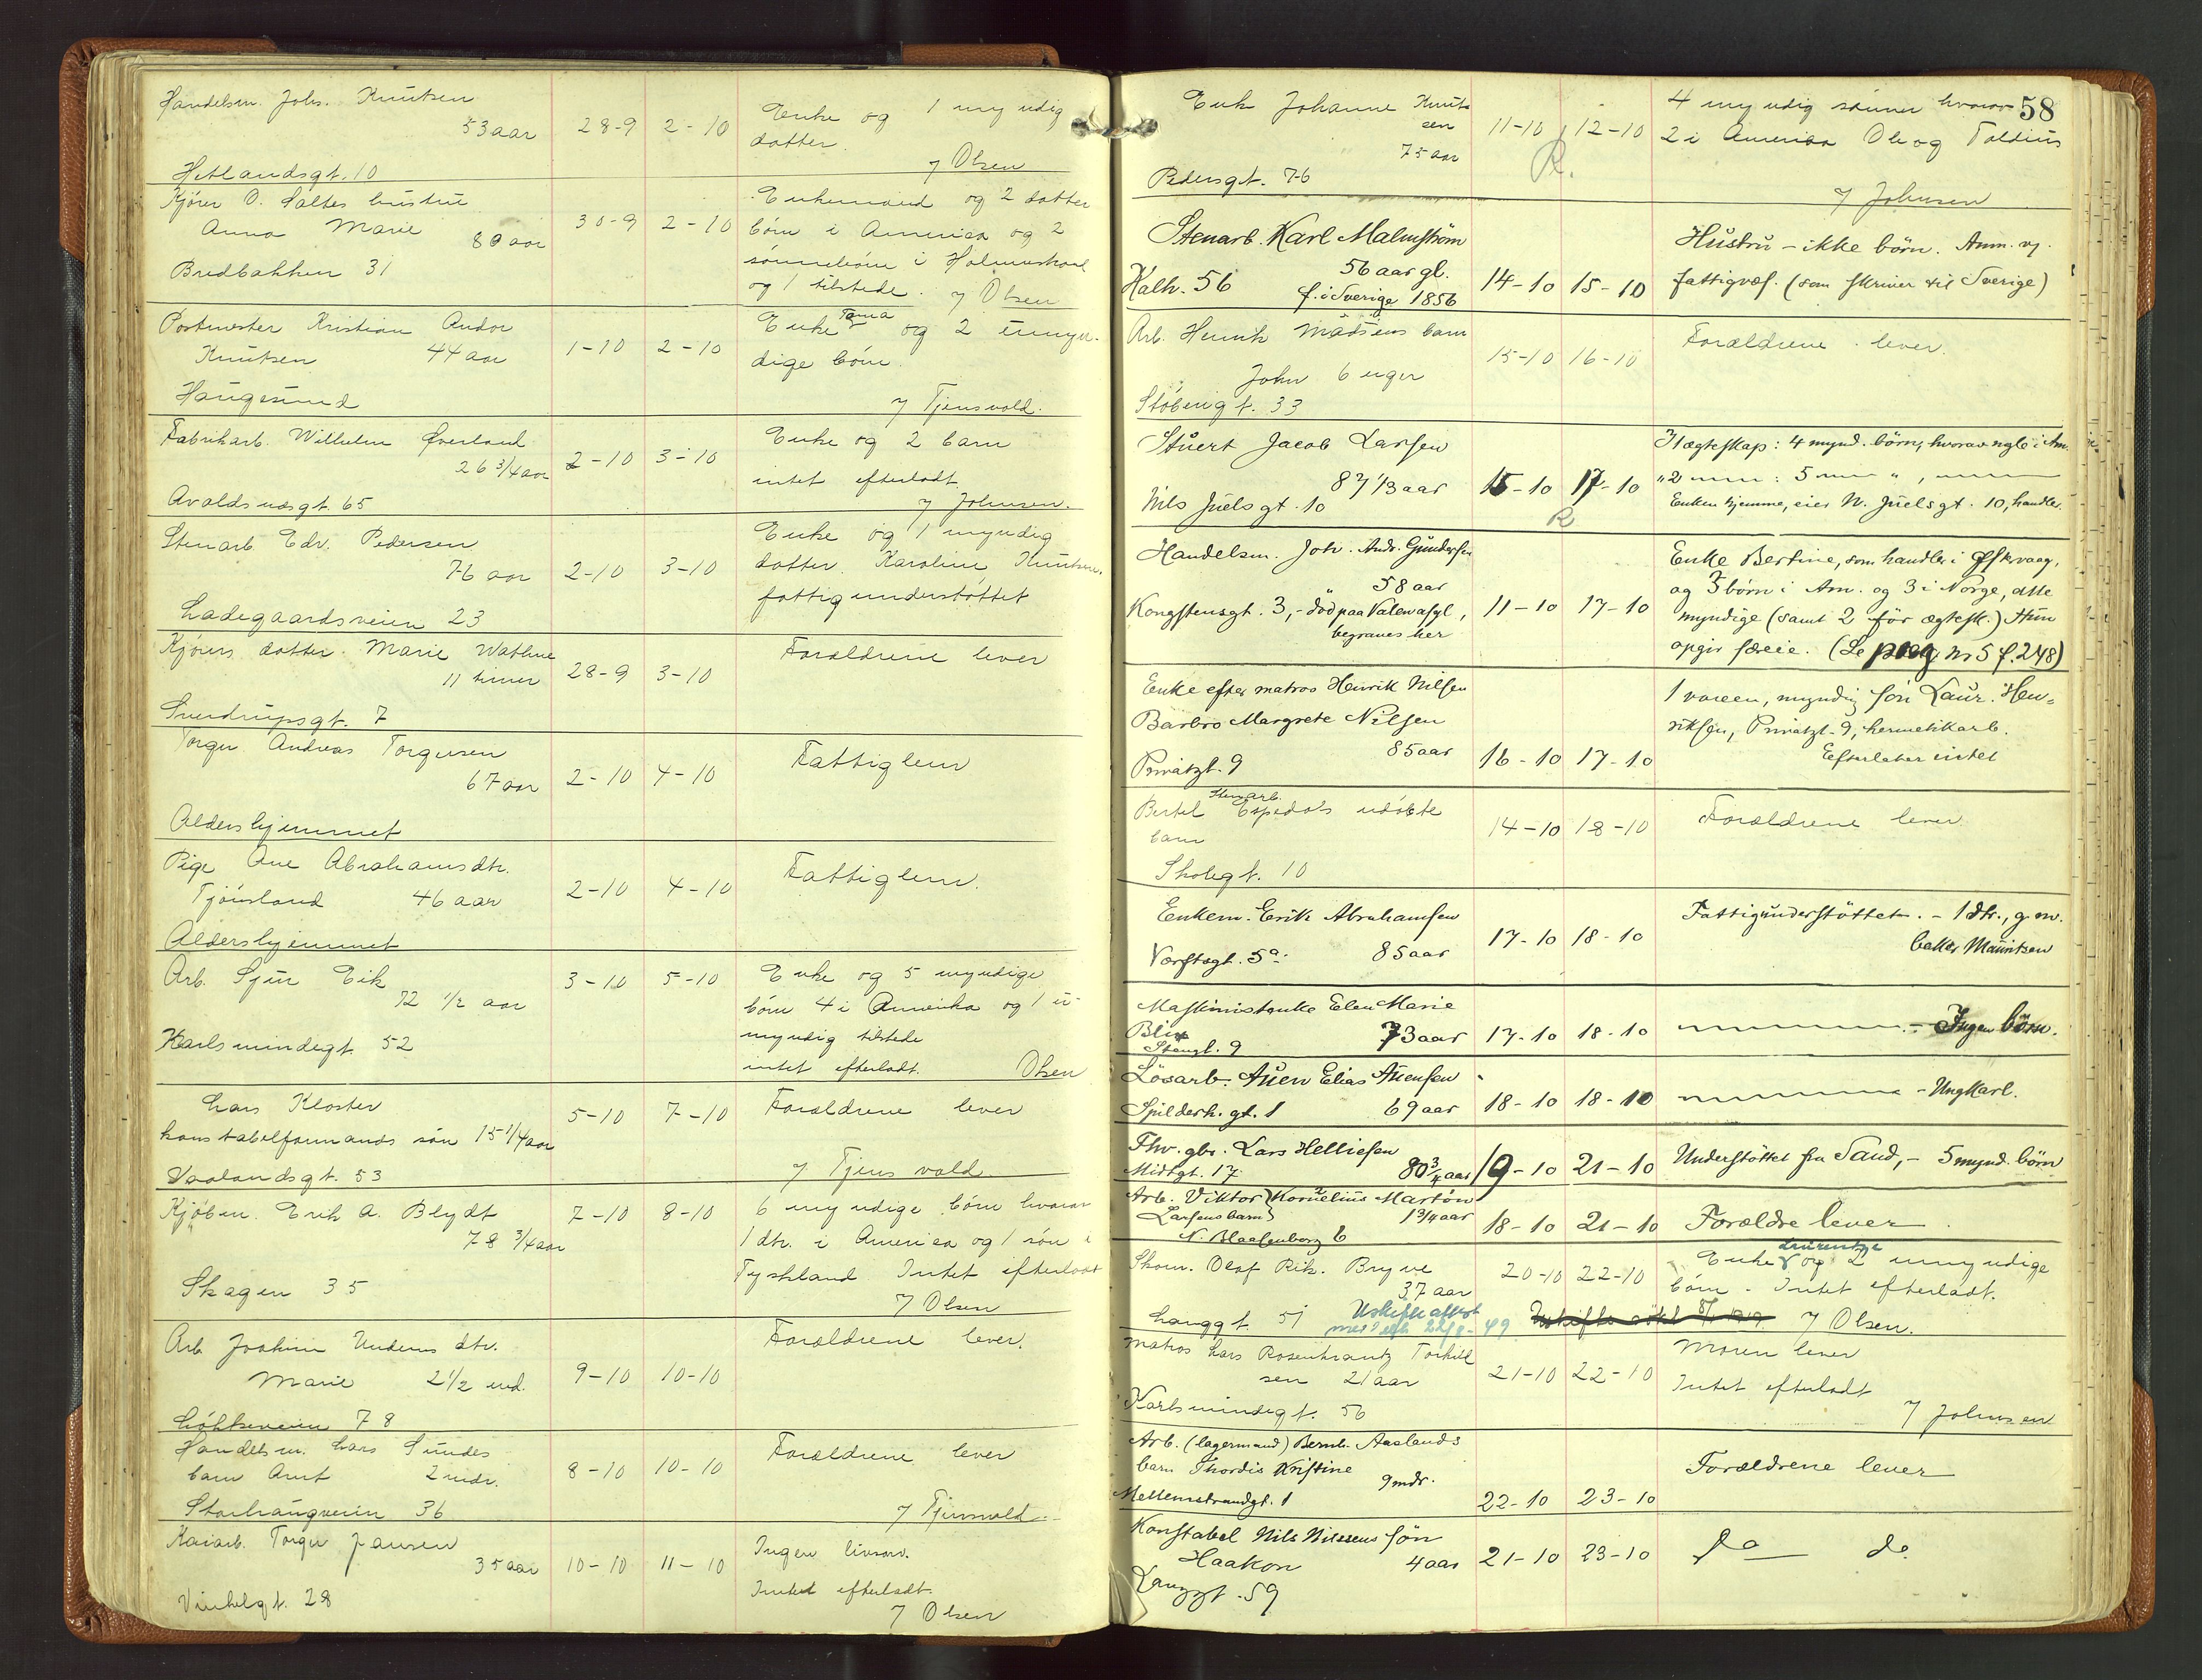 Handelsm. Johs. Knutsen
53 aar 28-9 2-10 Enke og 1 myndig
datter.
Hetlandsgt. 10 / Olsen
Kjører O. Saltes hustru
Anna Marie 80 aar 30-9 2-10 Enkemand og 2 datter
børn i America og 2
sønnebørn i
Bredbakken 31 og 1 tilstede. / Olsen
Postmester Kristian Andor
Knutsen 44 aar 1-10 2-10 Enke Toma og 2 umyn-
dige børn.
Haugesund / Tjensvold.
Fabrikarb. Wilhelm Øverland
26 3/4 aar 2-10 3-10 Enke og 2 barn
intet efterladt.
Avaldsnesgt. 65 / Johnsen.
Stenarb. Edv. Pedersen
76 aar 2-10 3-10 Enke og 1 myndig
datter Karoline Knutsen.
fattigunderstøttet
Ladegaardsveien 23
Kjørers datter Marie Wathne
11 timer 28-9 3-10 Forældrene lever
Sverdrupsgt. 7
Torger Andreas Torgersen
67 aar 2-10 4-10 Fattiglem
Aldershjemmet
Pige Ane Abrahamsdtr.
Tjørsland 46 aar 2-10 4-10 Fattiglem.
Aldershjemmet
Arb. Sjur Eik
72 1/2 aar 3-10 5-10 Enke og 5 myndige
børn 4 i Amerika og 1 u-
myndig tilstede
Karlsmindegt. 52 intet efterladt. Olsen
Lars Kloster
konstabelformands søn 15 1/4 aar 5-10 7-10 Forældrene lever
Vaalandsgt. 53 / Tjensvold
Kjøbm. Erik A. Blydt
78 3/4 aar 7-10 8-10 6 myndige børn hvorav
1 dtr. i America og 1 søn i
Tyskland. Intet efterladt
Skagen 35 / Olsen
Arb. Joakim Undems dtr.
Marie 2 1/2 md. 9-10 10-10 Forældrene lever.
Løkkeveien 78
Handelsm. Lars Sundes
barn Arnt 2 mdr. 8-10 10-10 Forældrene lever
Storhaugveien 36 / Tjensvold
Kaiarb. Torger Jansen
35 aar 10-10 11-10 Ingen livsarv.
Intet efterladt.
Vinkelgt. 28 / Olsen
58
Enke Johanne Knut-
sen
75 aar 11-10 12-10 4 myndig sønner hvorav
2 i America Ole og Toldius
R.
Pedersgt. 76 / Johnsen
Stenarb. Karl Malmstrøm
56 aar gl.
Kalh. 56 f. i Sverige 1856 14-10 15-10 Hustru - ikke børn. Anm. v.
fattigvæs. (som skriver til Sverige)
Arb. Henrik Madsens barn
John 6 uger 15-10 16-10 Forældrene lever.
Støberigt. 33
Stuert Jacob Larsen
87 1/3 aar 15-10 17-10 I 1 ægteskap: 4 mynd. børn, hvorav nogle i Am.
" 2 —— : 5 —— " , ——
Nils Juels gt. 10 Enken hjemme, eier N. Juels gt. 10, handler.
R
Handelsm. Joh. Andr. Gundersen
58 aar
Kongstensgt. 3, - død paa Valen asyl,
begraves her 11-10 17-10 Enke Bertine, som handler i Østervaag,
og 3 børn i Am. og 3 i Norge, alle
myndige (samt 2 før ægtesk.) Hun
opgir særeie. (Se prog nr 5 s. 248)
Enke efter matros Henrik Nilsen
Barbro Margrete Nilsen
85 aar
Privatgt. 9 16-10 17-10 1 voxen, myndig søn Laur. Hen-
riksen, Privatgt. 9, hermetikarb.
Efterlater intet
Stenarb.
Bertel Espedals udøbte
barn 14-10 18-10 Forældrene lever
Skolegt. 10
Enkem. Erik Abrahamsen
85 aar
Værftsgt. 5a. 17-10 18-10 Fattigunderstøttet. - 1 dtr., g. m.
baker Mauritzen
Maskinistenke Elen Marie
Blix 73 aar
Stengt. 9 17-10 18-10 —— - Ingen børn.
Løsarb. Auen Elias Auensen
Spilderh. gt. 1 69 aar 18-10 18-10 —— - Ungkarl.
Fhv. gbr. Lars Helliesen
Midtgt. 17 80 3/4 aar 19-10 21-10 Understøttet fra Sand, - 5 mynd. børn
Arb. Viktor } Kornelius Martin
Larsens barn } 1 3/4 aar
N. Blaasenborg 6 18-10 21-10 Forældre lever
Skom. Olaf Rik. Bryne
37 aar 20-10 22-10 Enke Laurentze og 2 umyndige
børn - Intet efterladt.
Langgt. 51 Uskifteattest
22/8-49 / Olsen.
Matros Lars Rosenkrantz Torkild
sen 21 aar 21-10 22-10 Moren lever
Intet efterladt
Karlsmindegt. 56 / Johnsen
Arb. (lagermand) Bernh. Aaslands
barn Thordis Kristine
9 mdr.
Mellemstrandgt. 1 22-10 23-10 Forældrene lever
Konstabel Nils Nilssens søn
Haakon 4 aar 21-10 23-10 Do do
Langgt. 59